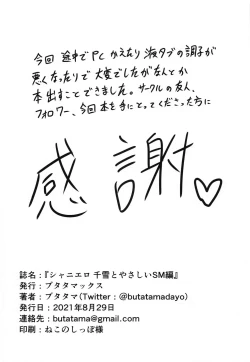 今回 途中で PC かえたり 液タブの調子が
悪くなったりで 大変でしたがなんとか
本出すことできました。サークルの友人、
フォロワー、今回本を手にとってくださった方に
感謝♡
誌名：『シャニエロ 千雪とやさしいSM編』
発行：ブタタマックス
著者：ブタタマ(Twitter：@butatamadayo)
発行日：2021年8月29日
連絡先：butatama@gmail.com
印刷：ねこのしっぽ様